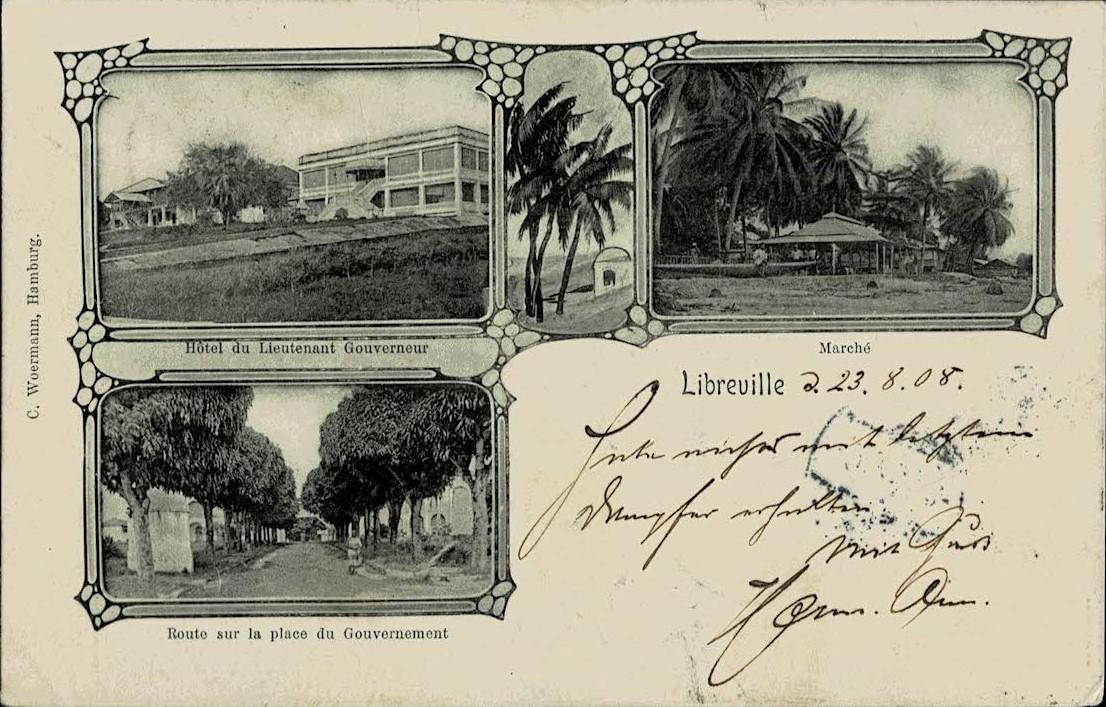 C. Woermann, Hamburg.
Hôtel du Lieutenant Gouverneur
Marché
Libreville d. 23. 8. 08.
Habe nichts mit letztem
Dampfer erhalten
Mit Gruss
Herm.
Route sur la place du Gouvernement